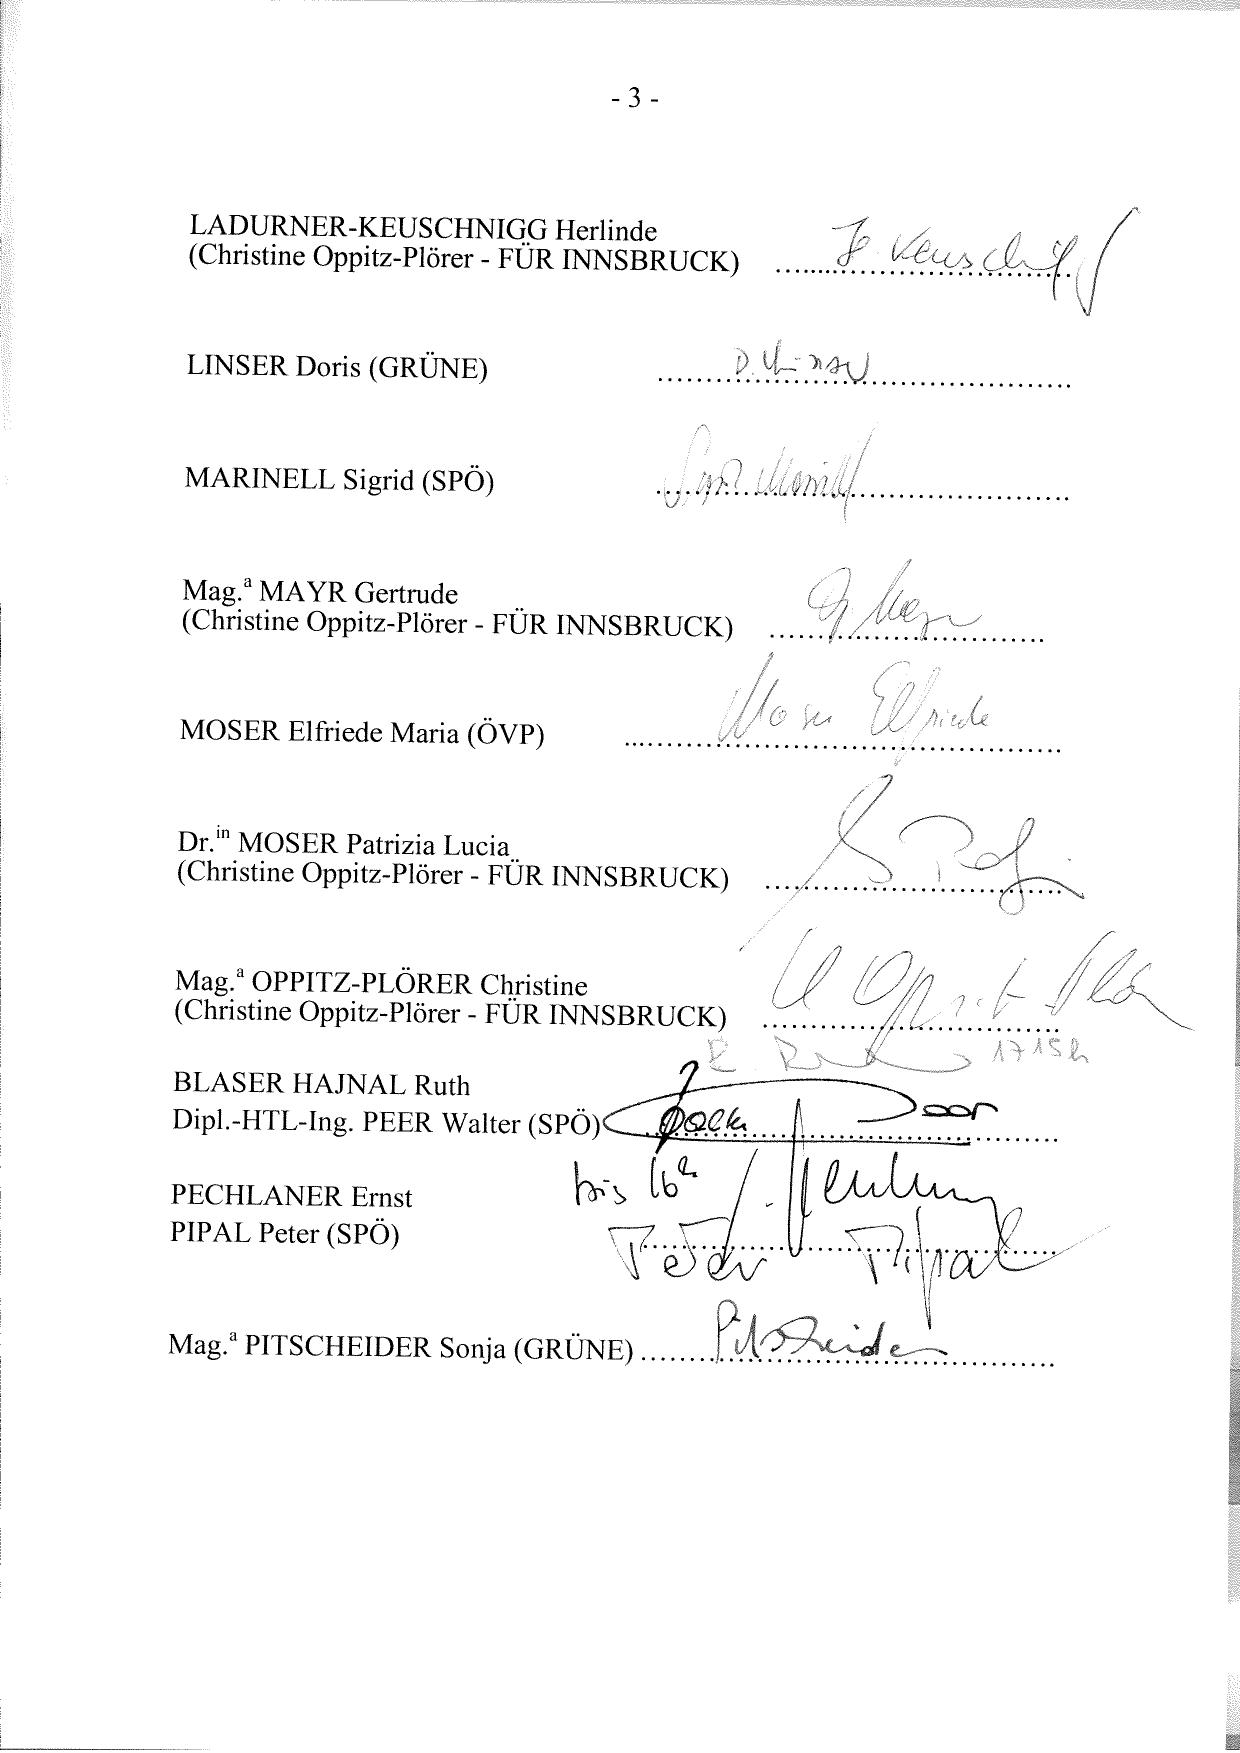 - 3 -
LADURNER-KEUSCHNIGG Herlinde
(Christine Oppitz-Plörer - FÜR INNSBRUCK) ........................ H Keuschnigg
LINSER Doris (GRÜNE) ........................ D. Linser
MARINELL Sigrid (SPÖ) ........................ Sigrid Marinell
Mag.ª MAYR Gertrude
(Christine Oppitz-Plörer - FÜR INNSBRUCK) ........................ G Mayr
MOSER Elfriede Maria (ÖVP) ........................ Moser Elfriede
Dr.in MOSER Patrizia Lucia
(Christine Oppitz-Plörer - FÜR INNSBRUCK) ........................
Mag.ª OPPITZ-PLÖRER Christine
(Christine Oppitz-Plörer - FÜR INNSBRUCK) ........................ Oppitz-Plö
1715h
BLASER HAJNAL Ruth
Dipl.-HTL-Ing. PEER Walter (SPÖ) ........................
bis 16h
PECHLANER Ernst
PIPAL Peter (SPÖ) ........................ Peter Pipal
Mag.ª PITSCHEIDER Sonja (GRÜNE) ........................ Pitscheider